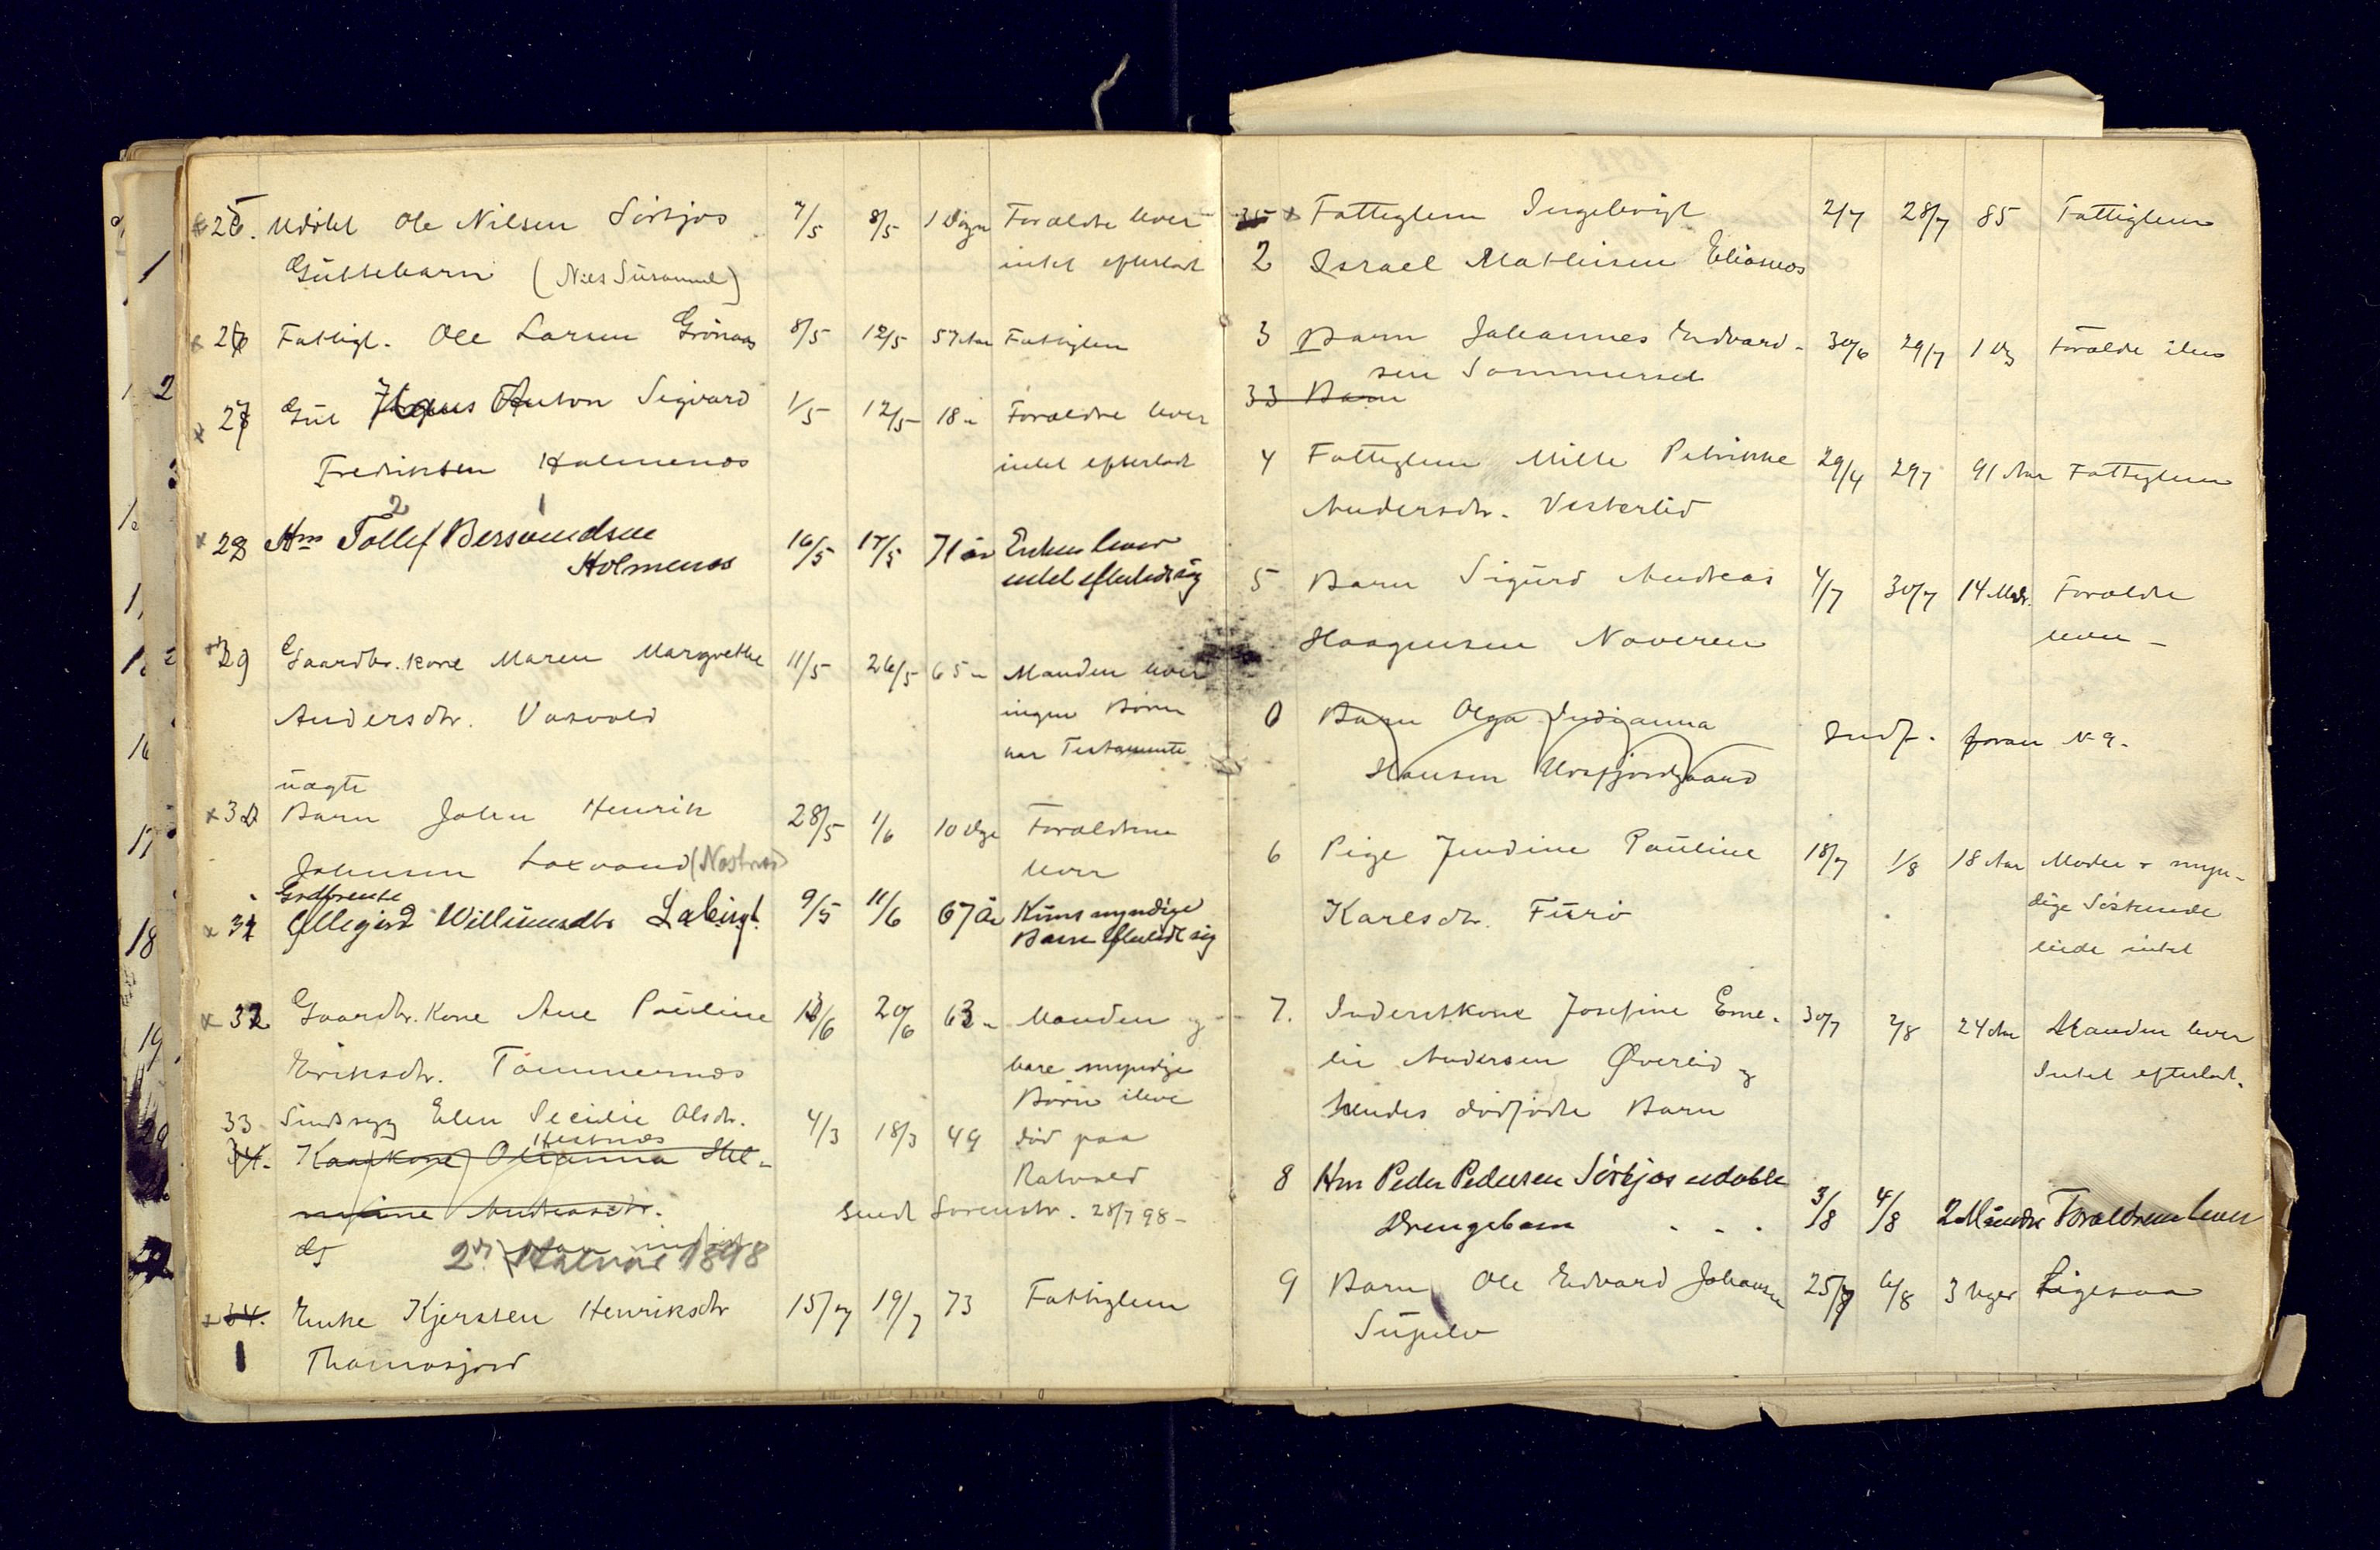 x 25. Udöbt Ole Nilsen Sörkjos 7/5 8/5 1 Dögn Forældre lever
Guttebarn (Nils Susamel) intet efterladt
x 26 Fattigl. Ole Larsen Grönaas 8/5 12/5 57 Aar Fattiglem
x 27 Gut Anton Sigvard 1/5 12/5 18 " Forældre lever
Fredriksen Holmenæs intet efterladt
2 1
x 28 Hm Tollef Bersvendsen 16/5 17/5 71 år Enken lever
Holmenæs intet efterladt sig
29 Gaardbr. kone Maren Margrethe 11/5 26/5 65 " Manden lever
Andersdtr. Vasvold ingen Börn
har Testamente
uægte
x 30 Barn Johan Henrik 28/5 1/6 10 Dge Forældrene
Johnsen Laxvand (Nostnæs) lever
Grdbrente
x 31 Ellegird Willumsdtr 9/5 11/6 67 År Kuns myndige
Barn efterladt sig
x 32 Gaardbr. Kone Ane Pauline 13/6 20/6 63 " Manden og
Eriksdtr. Tömmernæs bare myndige
Börn ilive
33 Sindssyg Elen Secilie Olsdr. 4/3 18/3 49 död paa
Hestnæs
34. Kaarkone Olianna Hel-
Rotvold
mine Andreasdtr.
Sendt Sorenskr. 28/7 98 -
2det Halvaar 1898
x 34. Enke Kjersten Henriksdtr 15/7 19/7 73 Fattiglem
1 Thomasjord
35 x Fattiglem Ingebrigt 2/7 28/7 85 Fattiglem
2 Israel Mathisen Eliasnæs
3 Barn Johannes Edvard- 30/6 29/7 1 Dg Forældre ilive
sen Sommersel
33 Barn
4 Fattiglem Mille Petrikke 29/4 29/7 91 Aar Fattiglem
Andersdtr. Vesterlid
5 Barn Sigurd Andreas 4/7 30/7 14 Mdr. Forældre
Haagensen Naveren lever -
0 Barn Olga Indianna Indf. foran N 9.
Hansen
6 Pige Jendine Pauline 18/7 1/8 18 Aar Moder & myn-
Karlsdtr. Furö dige Söskende
eiede intet
7. Inderstkone Josefine Eme- 30/7 2/8 24 Aar Manden lever
lie Andersen Överlid og Intet efterladt.
hendes dödfödte Barn
8 Hm Peder Pedersen Sörkjos udöbte
Drengebarn . - . 3/8 4/8 2 Månder Forældrene lever
9 Barn Ole Edvard Johansen 25/7 6/8 3 Uger Ligesaa